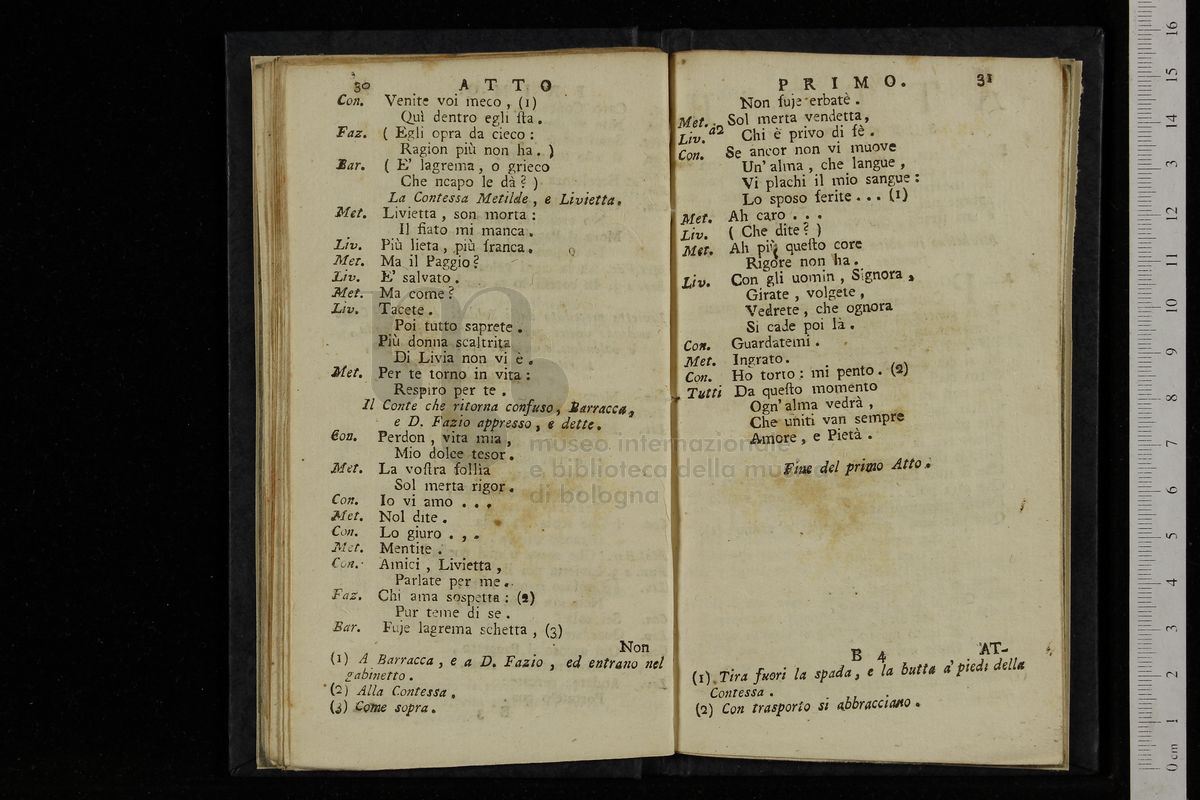 30 ATTO
Con. Venite voi meco, (1)
Quì dentro egli ſta.
Faz. ( Egli opra da cieco:
Ragion più non ha. )
Bar. ( E' lagrema, o grieco
Che ncapo le dà? )
La Conteſſa Metilde, e Livietta.
Met. Livietta, son morta:
Il fiato mi manca.
Liv. Più lieta, più franca.
Met. Ma il Paggio?
Liv. E' salvato.
Met. Ma come?
Liv. Tacete.
Poi tutto saprete.
Più donna scaltrita
Di Livia non vi è.
Met. Per te torno in vita:
Respiro per te.
Il Conte che ritorna confuso, Barracca,
e D. Fazio appresso, e dette.
Con. Perdon, vita mia,
Mio dolce tesor.
Met. La voſtra follìa
Sol merta rigor.
Con. Io vi amo . . .
Met. Nol dite.
Con. Lo giuro . , .
Met. Mentite.
Con. Amici, Livietta,
Parlate per me.
Faz. Chi ama sospetta: (2)
Pur teme di se.
Bar. Fuje lagrema schetta, (3)
Non
(1) A Barracca, e a D. Fazio, ed entrano nel
gabinetto.
(2) Alla Contessa.
(3) Come sopra.
PRIMO. 31
Non fuje erbatè.
Met. Sol merta vendetta,
Liv. a2 Chi è privo di fè.
Con. Se ancor non vi muove
Un' alma, che langue,
Vi plachi il mio sangue:
Lo sposo ferite . . . (1)
Met. Ah caro . . .
Liv. ( Che dite? )
Met. Ah più queſto core
Rigore non ha.
Liv. Con gli uomin, Signora,
Girate, volgete,
Vedrete, che ognora
Si cade poi là.
Con. Guardatemi.
Met. Ingrato.
Con. Ho torto: mi pento. (2)
Tutti Da queſto momento
Ogn' alma vedrà,
Che uniti van sempre
Amore, e Pietà.
Fine del primo Atto.
B 4 AT-
(1) Tira fuori la spada, e la butta a' piedi della
Contessa.
(2) Con trasporto si abbracciano.
museo internazionale
e biblioteca della musica
di bologna
0 cm 1 2 3 4 5 6 7 8 9 10 11 12 13 14 15 16